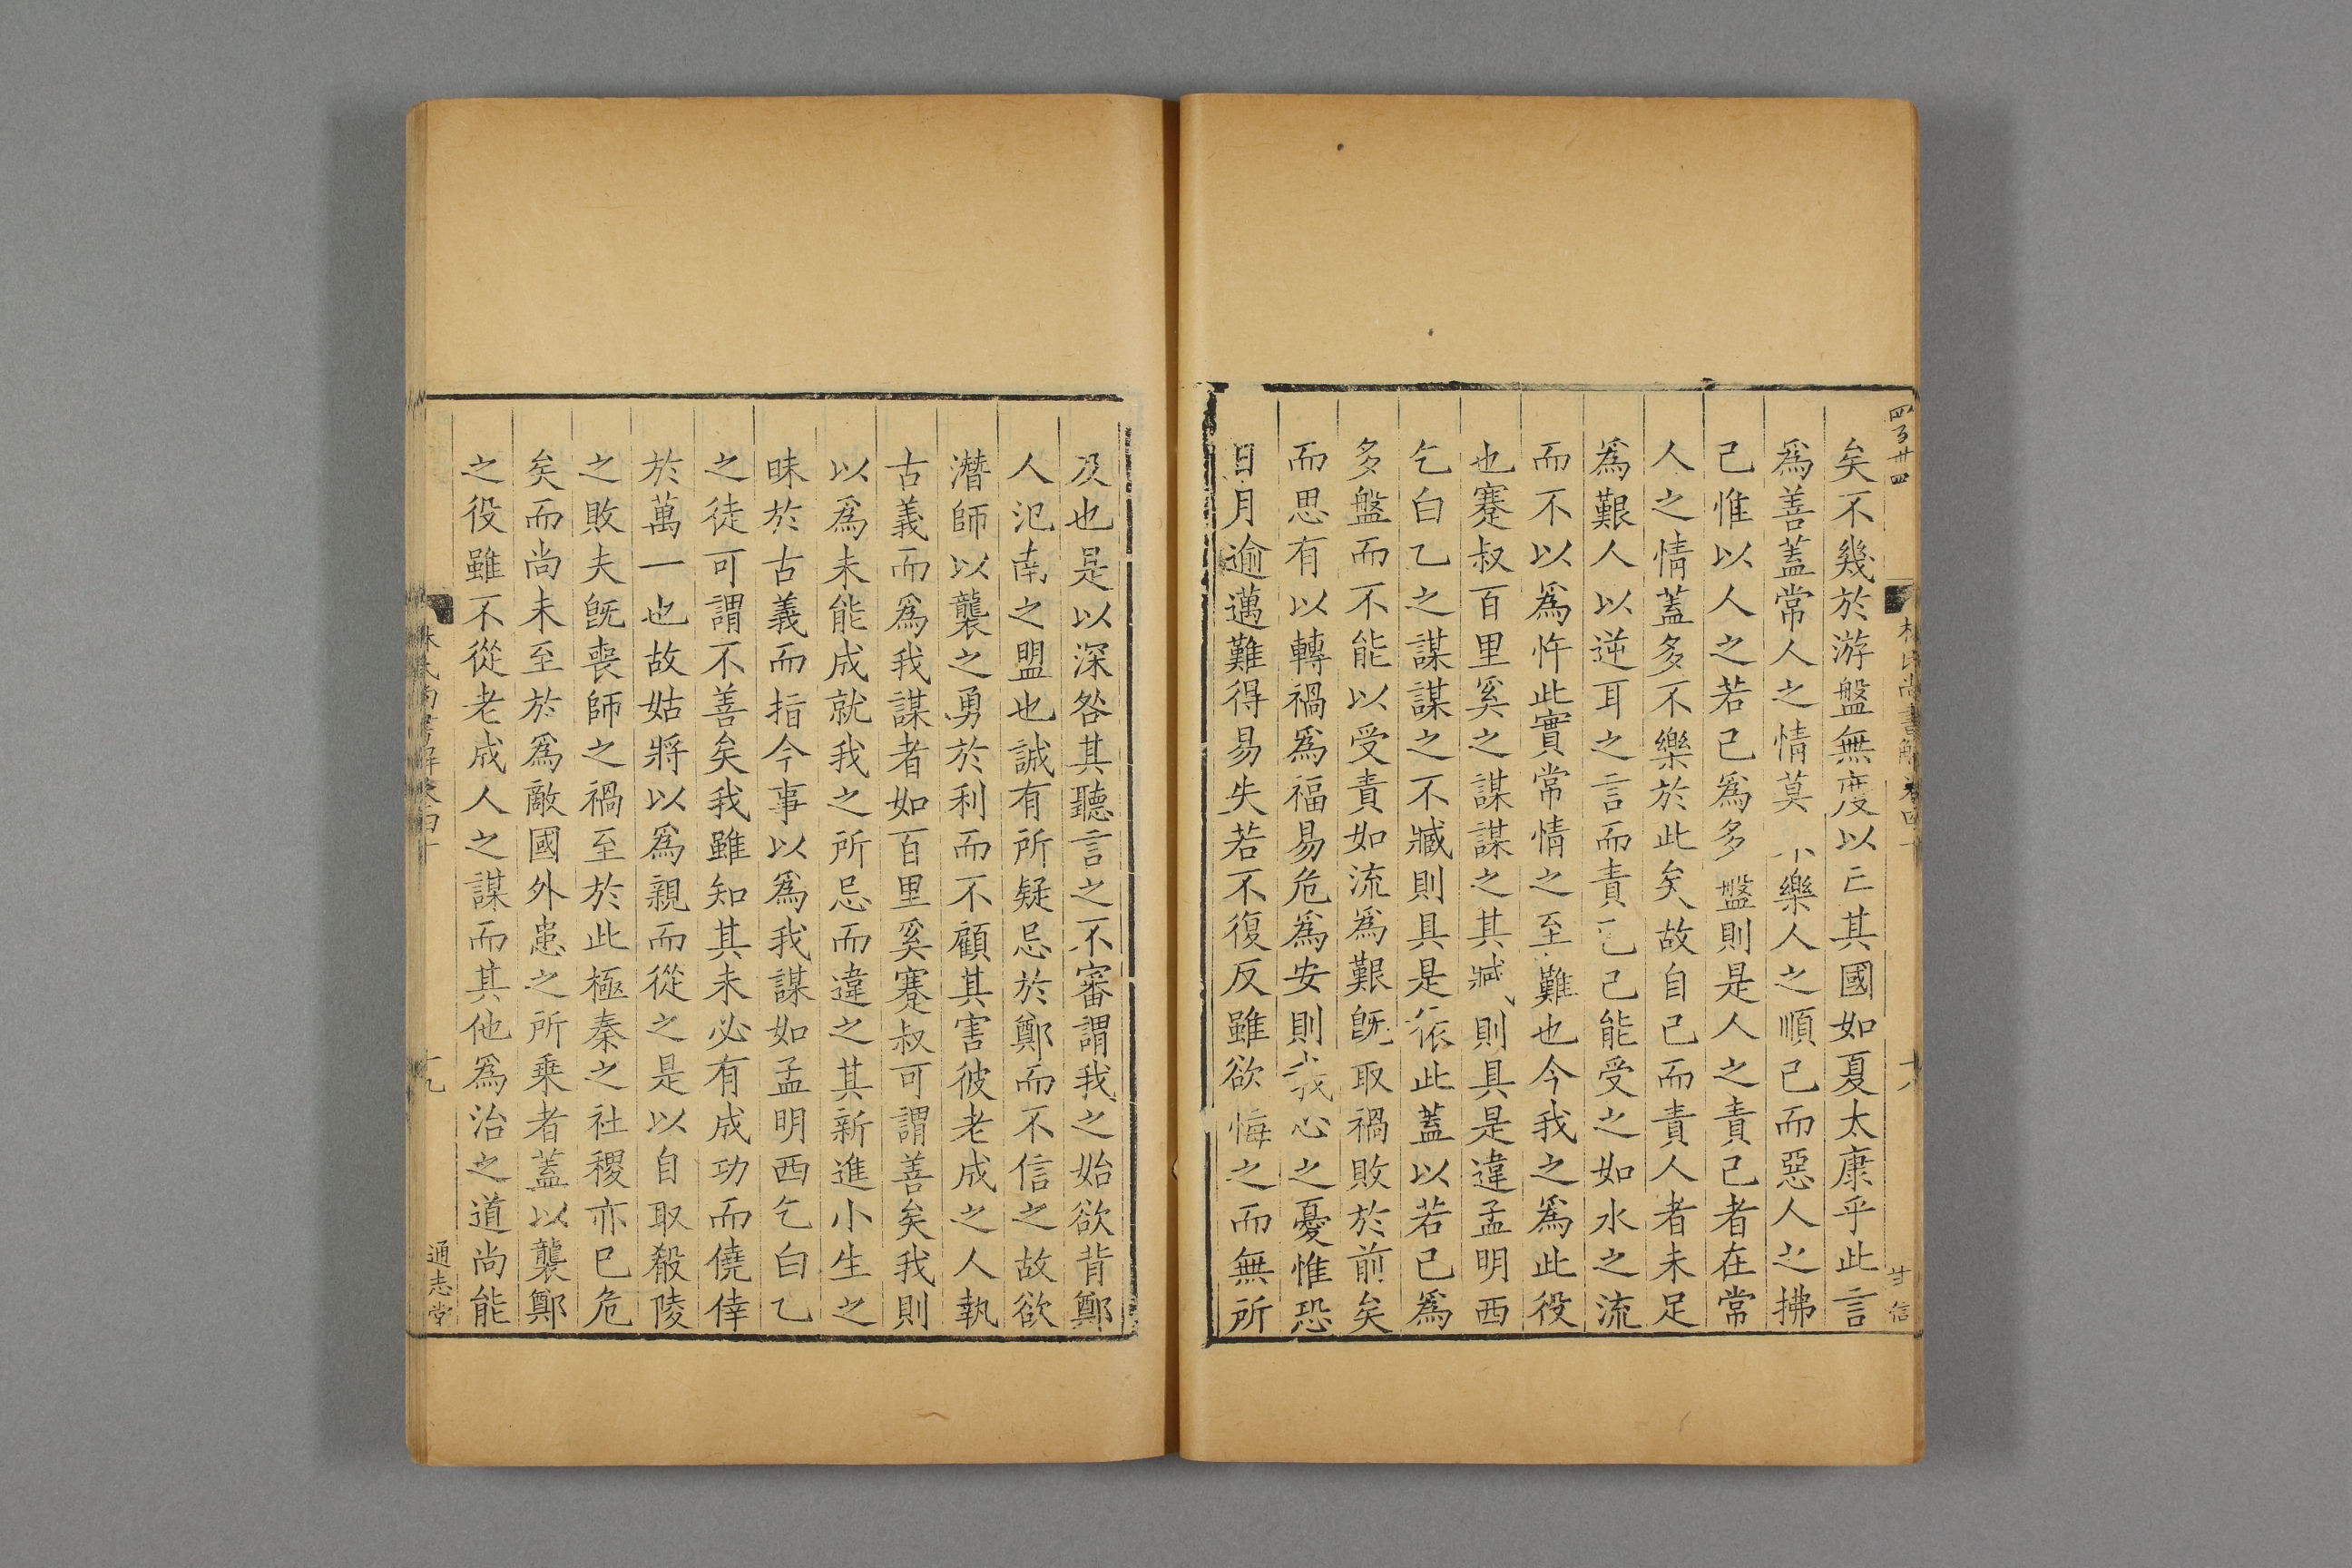 四百廿四
林氏尚書解卷四十
十八
甘信
矣不幾於游盤無度以亡其國如夏太康乎此言
爲善蓋常人之情莫不樂人之順己而惡人之拂
己惟以人之若己爲多盤則是人之責己者在常
人之情蓋多不樂於此矣故自己而責人者未足
爲艱人以逆耳之言而責己己能受之如水之流
而不以爲忤此實常情之至難也今我之爲此役
也蹇叔百里奚之謀謀之其臧則具是違孟明西
乞白乙之謀謀之不臧則具是依此蓋以若己爲
多盤而不能以受責如流爲艱旣取禍敗於前矣
而思有以轉禍爲福易危爲安則我心之憂惟恐
日月逾邁難得易失若不復反雖欲悔之而無所
及也是以深咎其聽言之不審謂我之始欲背鄭
人氾南之盟也誠有所疑忌於鄭而不信之故欲
潛師以襲之勇於利而不顧其害彼老成之人執
古義而爲我謀者如百里奚蹇叔可謂善矣我則
以爲未能成就我之所忌而違之其新進小生之
昧於古義而指今事以爲我謀如孟明西乞白乙
之徒可謂不善矣我雖知其未必有成功而僥倖
於萬一也故姑將以爲親而從之是以自取殽陵
之敗夫旣喪師之禍至於此極秦之社稷亦已危
矣而尚未至於爲敵國外患之所乘者蓋以襲鄭
之役雖不從老成人之謀而其他爲治之道尚能
林氏尚書解卷四十
十九
通志堂